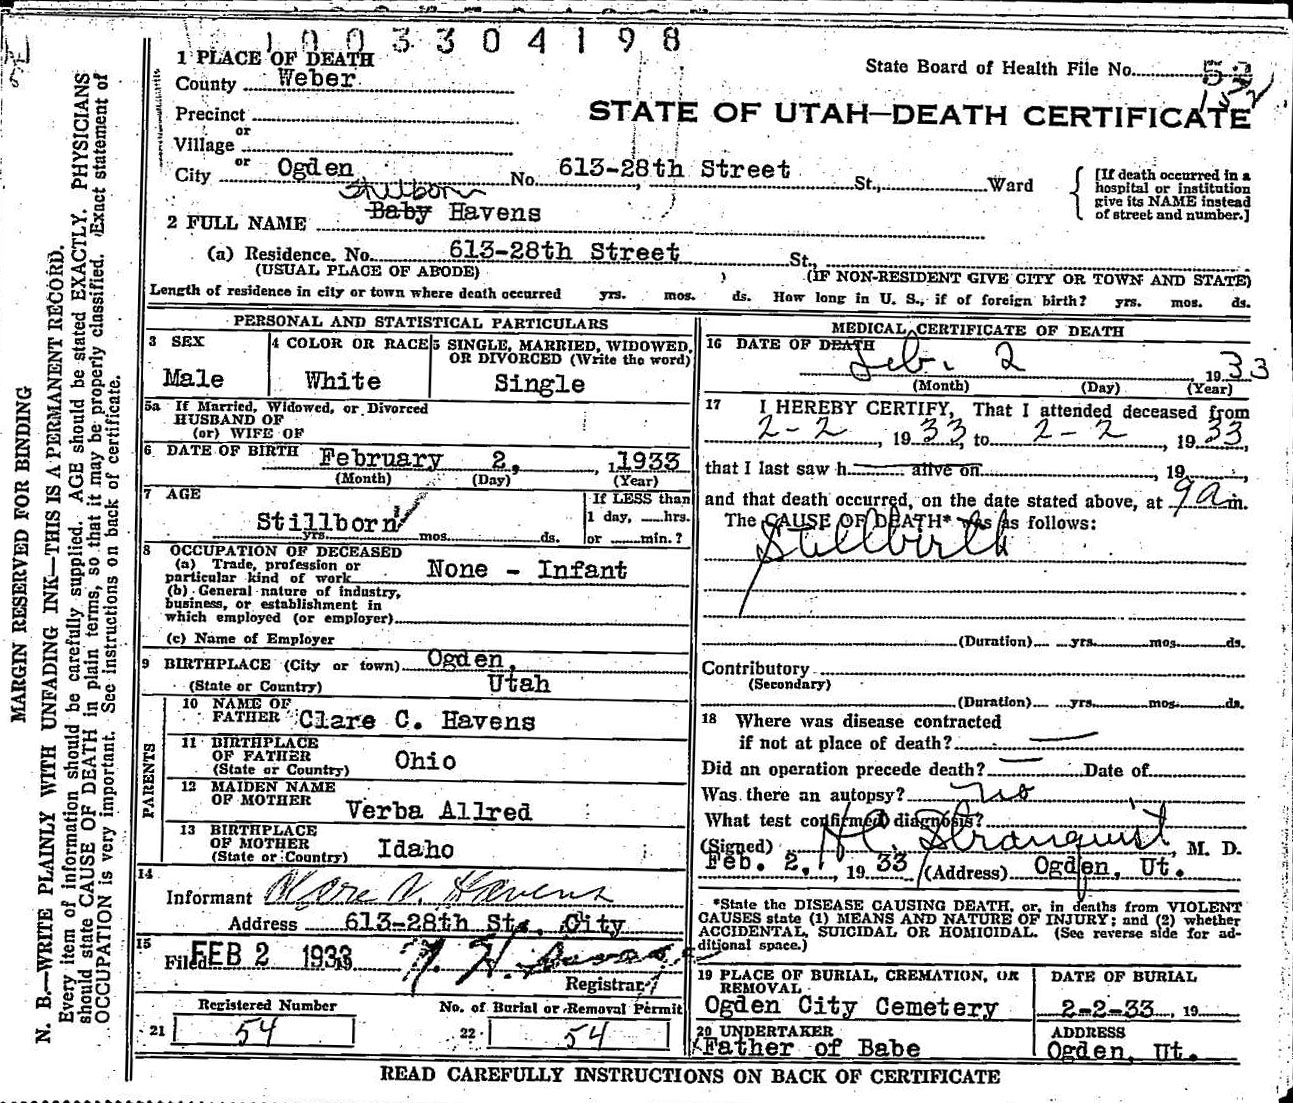 1003304198
1 PLACE OF DEATH
State Board of Health File No. 52
County Weber
STATE OF UTAH—DEATH CERTIFICATE
Precinct
or
Village
or
City Ogden No. 613-28th Street St., Ward
[If death occurred in a
hospital or institution
give its NAME instead
of street and number.]
Stillborn
2 FULL NAME Baby Havens
(a) Residence. No. 613-28th Street St.,
(USUAL PLACE OF ABODE) (IF NON-RESIDENT GIVE CITY OR TOWN AND STATE)
Length of residence in city or town where death occurred yrs. mos. ds. How long in U. S., if of foreign birth? yrs. mos. ds.
PERSONAL AND STATISTICAL PARTICULARS
3 SEX
Male
4 COLOR OR RACE
White
5 SINGLE, MARRIED, WIDOWED,
OR DIVORCED (Write the word)
Single
5a If Married, Widowed, or Divorced
HUSBAND OF
(or) WIFE OF
6 DATE OF BIRTH February 2, , 1933
(Month) (Day) (Year)
7 AGE
Stillborn
yrs. mos. ds.
If LESS than
1 day, hrs.
or min.?
8 OCCUPATION OF DECEASED
(a) Trade, profession or
particular kind of work None - Infant
(b) General nature of industry,
business, or establishment in
which employed (or employer)
(c) Name of Employer
9 BIRTHPLACE (City or town) Ogden,
(State or Country) Utah
PARENTS
10 NAME OF
FATHER Clare C. Havens
11 BIRTHPLACE
OF FATHER Ohio
(State or Country)
12 MAIDEN NAME
OF MOTHER Verba Allred
13 BIRTHPLACE
OF MOTHER Idaho
(State or Country)
14
Informant Havens
Address 613-28th St., City
15
Filed FEB 2 1933
Registrar
Registered Number
21 54
No. of Burial or Removal Permit
22 54
MEDICAL CERTIFICATE OF DEATH
16 DATE OF DEATH
Feb. 2 1933
(Month) (Day) (Year)
17 I HEREBY CERTIFY, That I attended deceased from
2-2, 1933 to 2-2, 1933,
that I last saw h alive on , 19 ,
and that death occurred, on the date stated above, at 9a m.
The CAUSE OF DEATH* was as follows:
Stillbirth
(Duration) yrs. mos. ds.
Contributory
(Secondary)
(Duration) yrs. mos. ds.
18 Where was disease contracted
if not at place of death? —
Did an operation precede death? — Date of
Was there an autopsy? no
What test confirmed diagnosis?
(Signed) Stranquist, M. D.
Feb. 2, , 1933 (Address) Ogden, Ut.
*State the DISEASE CAUSING DEATH, or, in deaths from VIOLENT
CAUSES state (1) MEANS AND NATURE OF INJURY; and (2) whether
ACCIDENTAL, SUICIDAL OR HOMICIDAL. (See reverse side for ad-
ditional space.)
19 PLACE OF BURIAL, CREMATION, OR
REMOVAL
Ogden City Cemetery
DATE OF BURIAL
2-2-33, 19
20 UNDERTAKER
Father of Babe
ADDRESS
Ogden, Ut.
READ CAREFULLY INSTRUCTIONS ON BACK OF CERTIFICATE
MARGIN RESERVED FOR BINDING
N. B.—WRITE PLAINLY WITH UNFADING INK—THIS IS A PERMANENT RECORD.
Every item of information should be carefully supplied. AGE should be stated EXACTLY. PHYSICIANS
should state CAUSE OF DEATH in plain terms, so that it may be properly classified. Exact statement of
OCCUPATION is very important. See instructions on back of certificate.